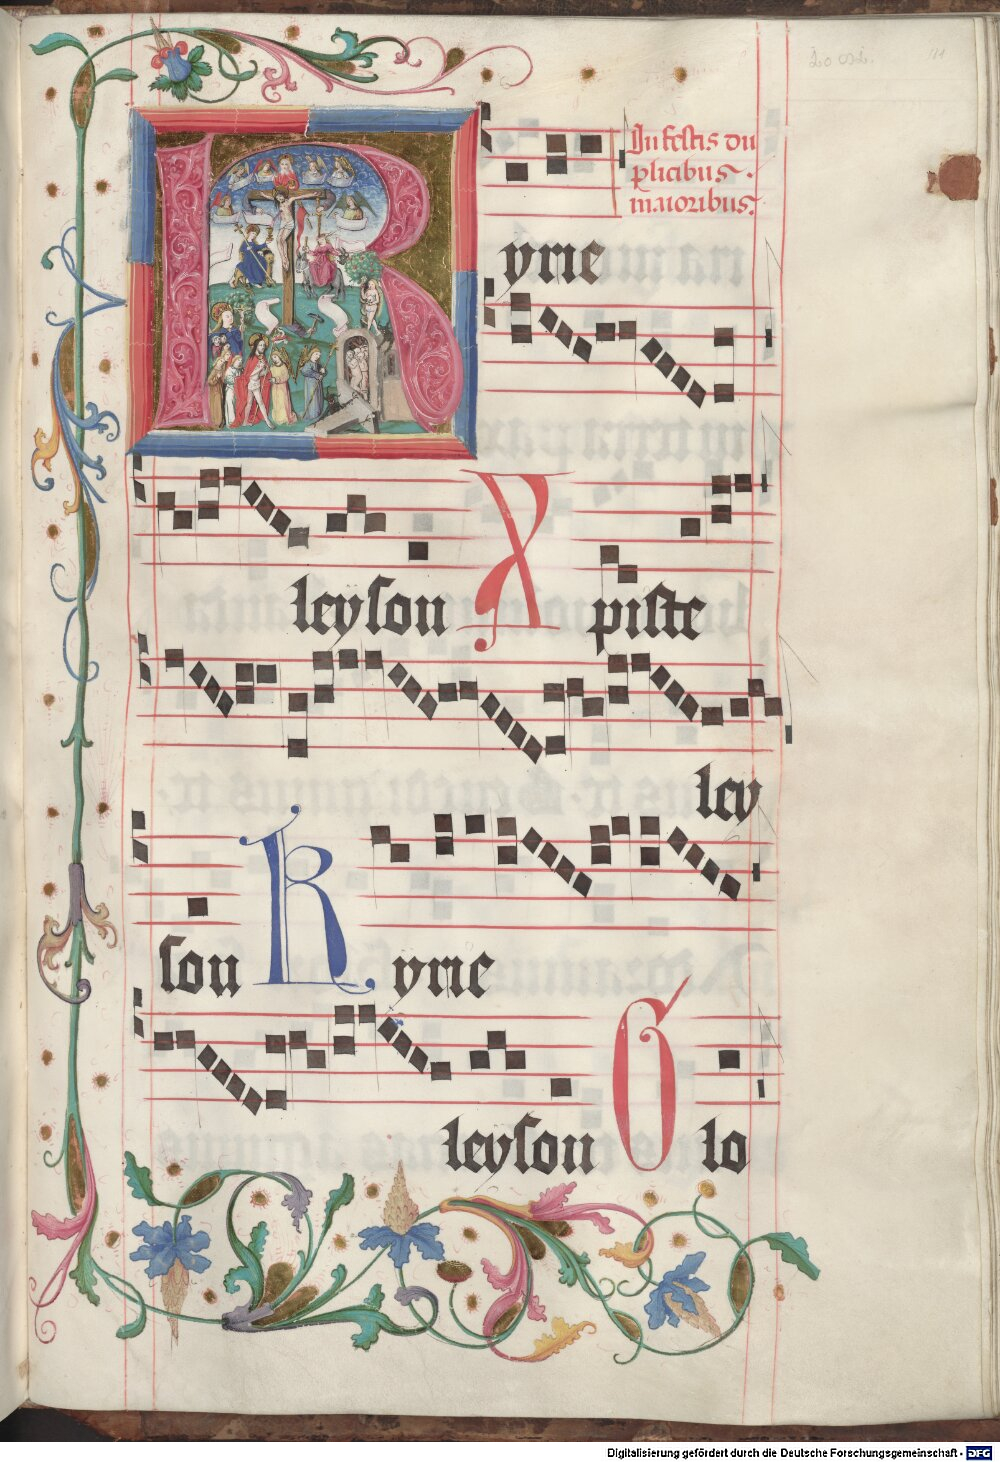 In festis du
plicibus .
maioribus.
Kyrie
leyson Xpiste
ley
son Kyrie
leyson Glo
Digitalisierung gefördert durch die Deutsche Forschungsgemeinschaft - DFG